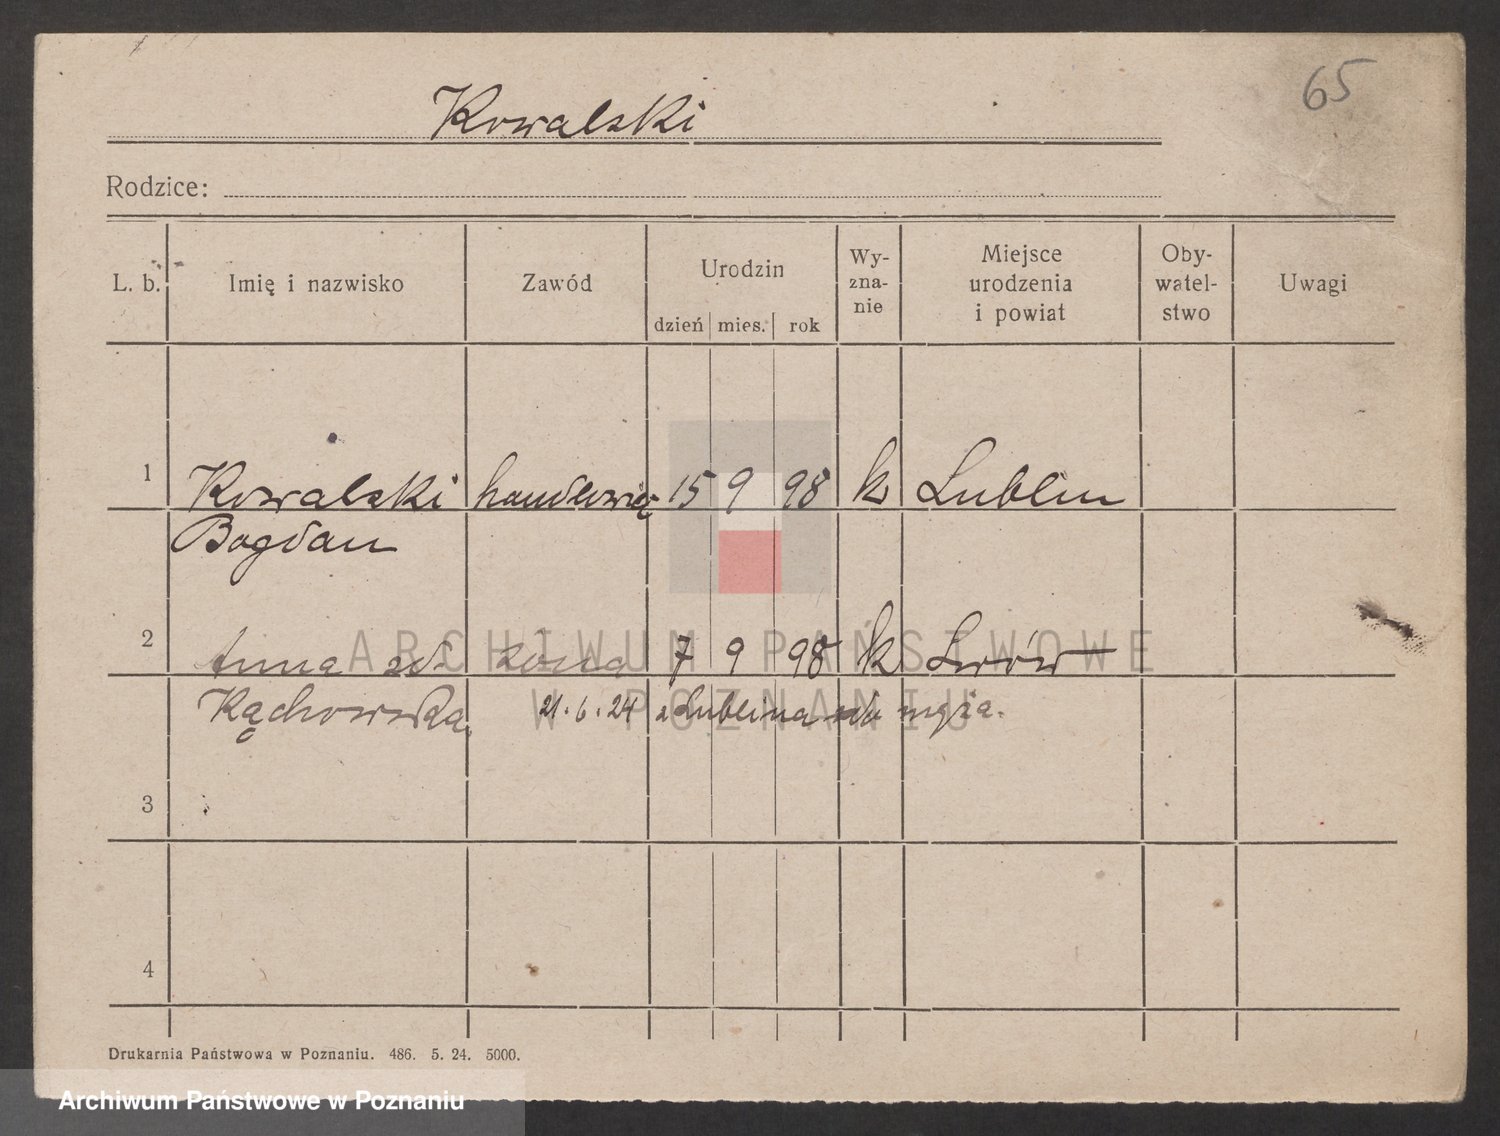 65
Kowalski
Rodzice:
L. b. Imię i nazwisko Zawód Urodzin dzień mies. rok Wy-zna-nie Miejsce urodzenia i powiat Oby-watel-stwo Uwagi
1 Kowalski handlowiec 15 9 98 k Lublin
Bogdan
2 Anna zd. żona 7 9 98 k Lwów
Kąchowska 21.6.24 z Lublina do męża.
3
4
Drukarnia Państwowa w Poznaniu. 486. 5. 24. 5000.
ARCHIWUM PAŃSTWOWE
W POZNANIU
Archiwum Państwowe w Poznaniu